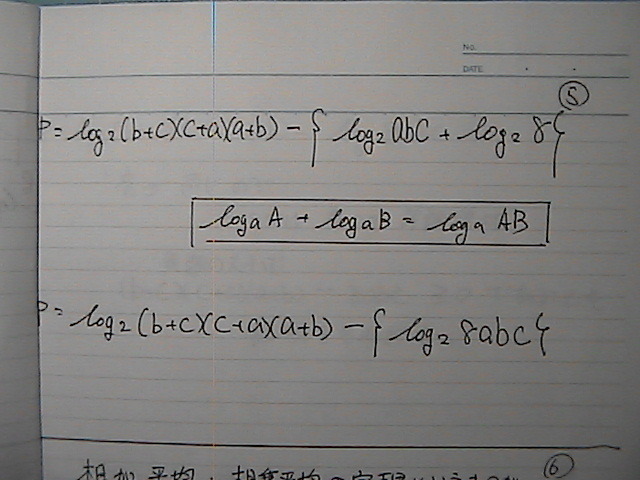 No.
DATE . .
⑤
P = log₂(b+c)(c+a)(a+b) - { log₂ abc + log₂ 8 }
logₐA + logₐB = logₐ AB
P = log₂(b+c)(c+a)(a+b) - { log₂ 8abc }
⑥
相加平均, 相乗平均の定理